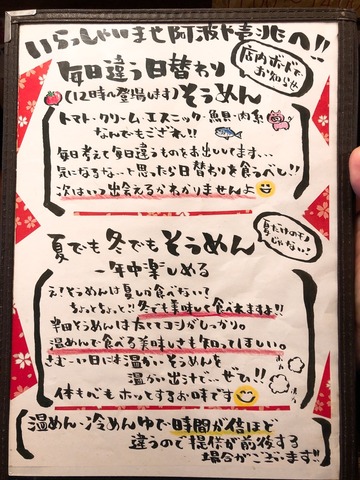 いらっしゃいませ阿波や壱兆へ!!
毎日違う日替わり
店内ボードで
お知らせ
(12時〜登場します)そうめん
トマト・クリーム・エスニック・魚貝・肉系
なんでもござれ!!
毎日考えて毎日違うものをお出ししてます、、、
気になるな〜と思ったら日替わりを食べるべし!!
次はいつ出会えるかわかりませんよ
夏だけのモノ
じゃない!
夏でも冬でもそうめん
一年中楽しめる
え?そうめんは夏しか食べない?
ちょっとちょっと!!冬でも美味しく食べれますよ!!
半田そうめんは太くてコシがしっかり。
温めんで食べる美味しさも知ってほしい。
さむ〜い日には温かいそうめんを
温かい出汁で…ぜひ!!
体も心もホッとするお味です
温めん・冷めんゆで時間が倍ほど
違うので提供が前後する
場合がございます!!